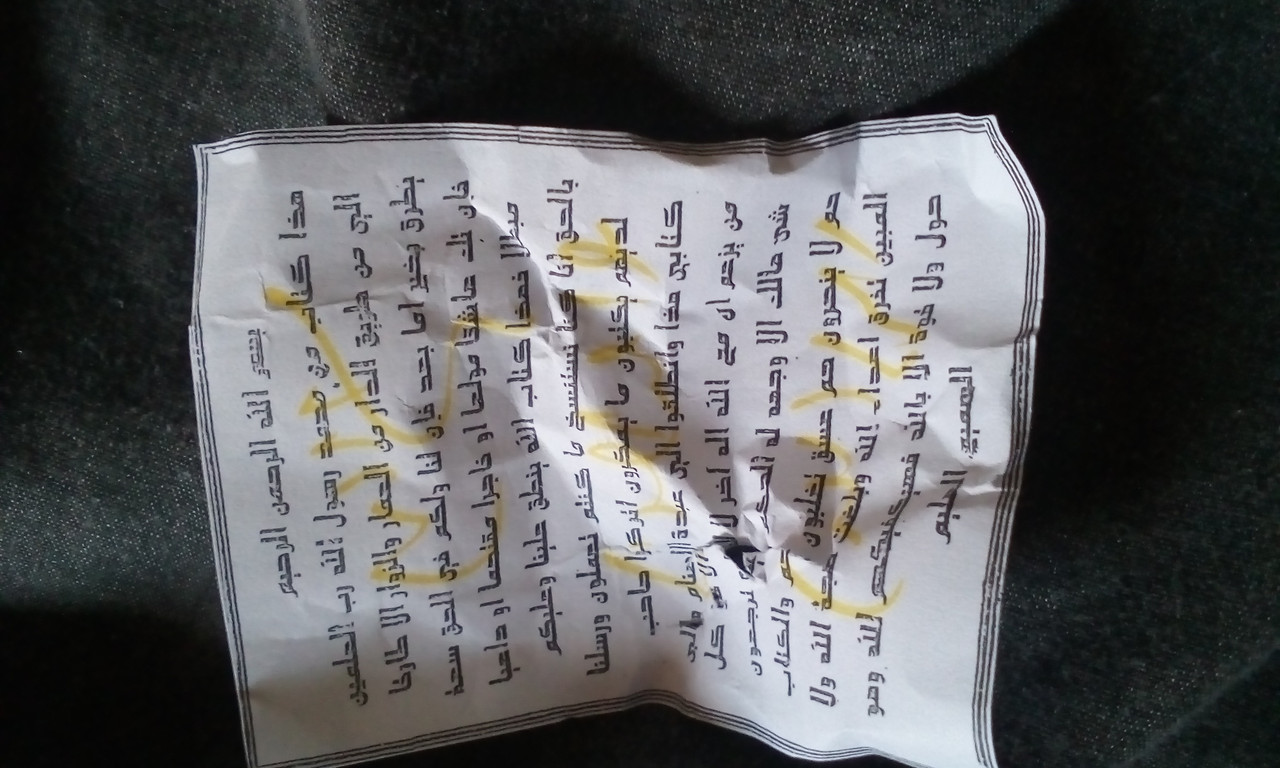 بسم الله الرحمن الرحيم
هذا كتاب من محمد رسول الله رب العلمين
الى من طريق الدار من العمار والزوار الا طارقا
يطرق بخير اما بعد فان لنا ولكم في الحق سعة
فان تك عاشقا مولعا او فاجرا مقتحما او داعيا
مبطلا فهذا كتاب الله ينطق علينا وعليكم
بالحق انا كنا نستنسخ ما كنتم تعملون ورسلنا
لديهم يكتبون ما يمكرون اتركوا صاحب
كتابي هذا وانطلقوا الى عبدة الاصنام والى
من يزعم ان مع الله اله اخر لا كل
شي هالك الا وجهه له الحكم ترجعون
حم لا ينصرون حم عسق تغلبون حم والكتاب
المبين تفرق اعداء الله وبلغت حجة الله ولا
حول ولا قوة الا بالله فسيكفيكهم الله وهو
السميع العليم